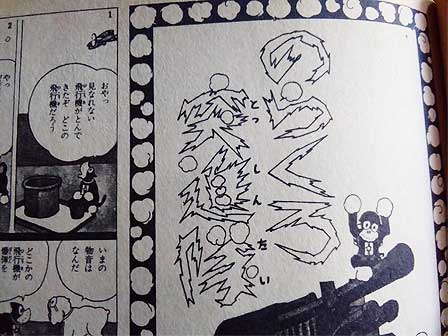 のらくろ
突進隊
とっしんたい
1
おやっ
見なれない
飛行機がとんで
きたぞ どこの
飛行機だろう
いまの
物音は
なんだ
どこかの
飛行機が
爆弾を
2
やっ